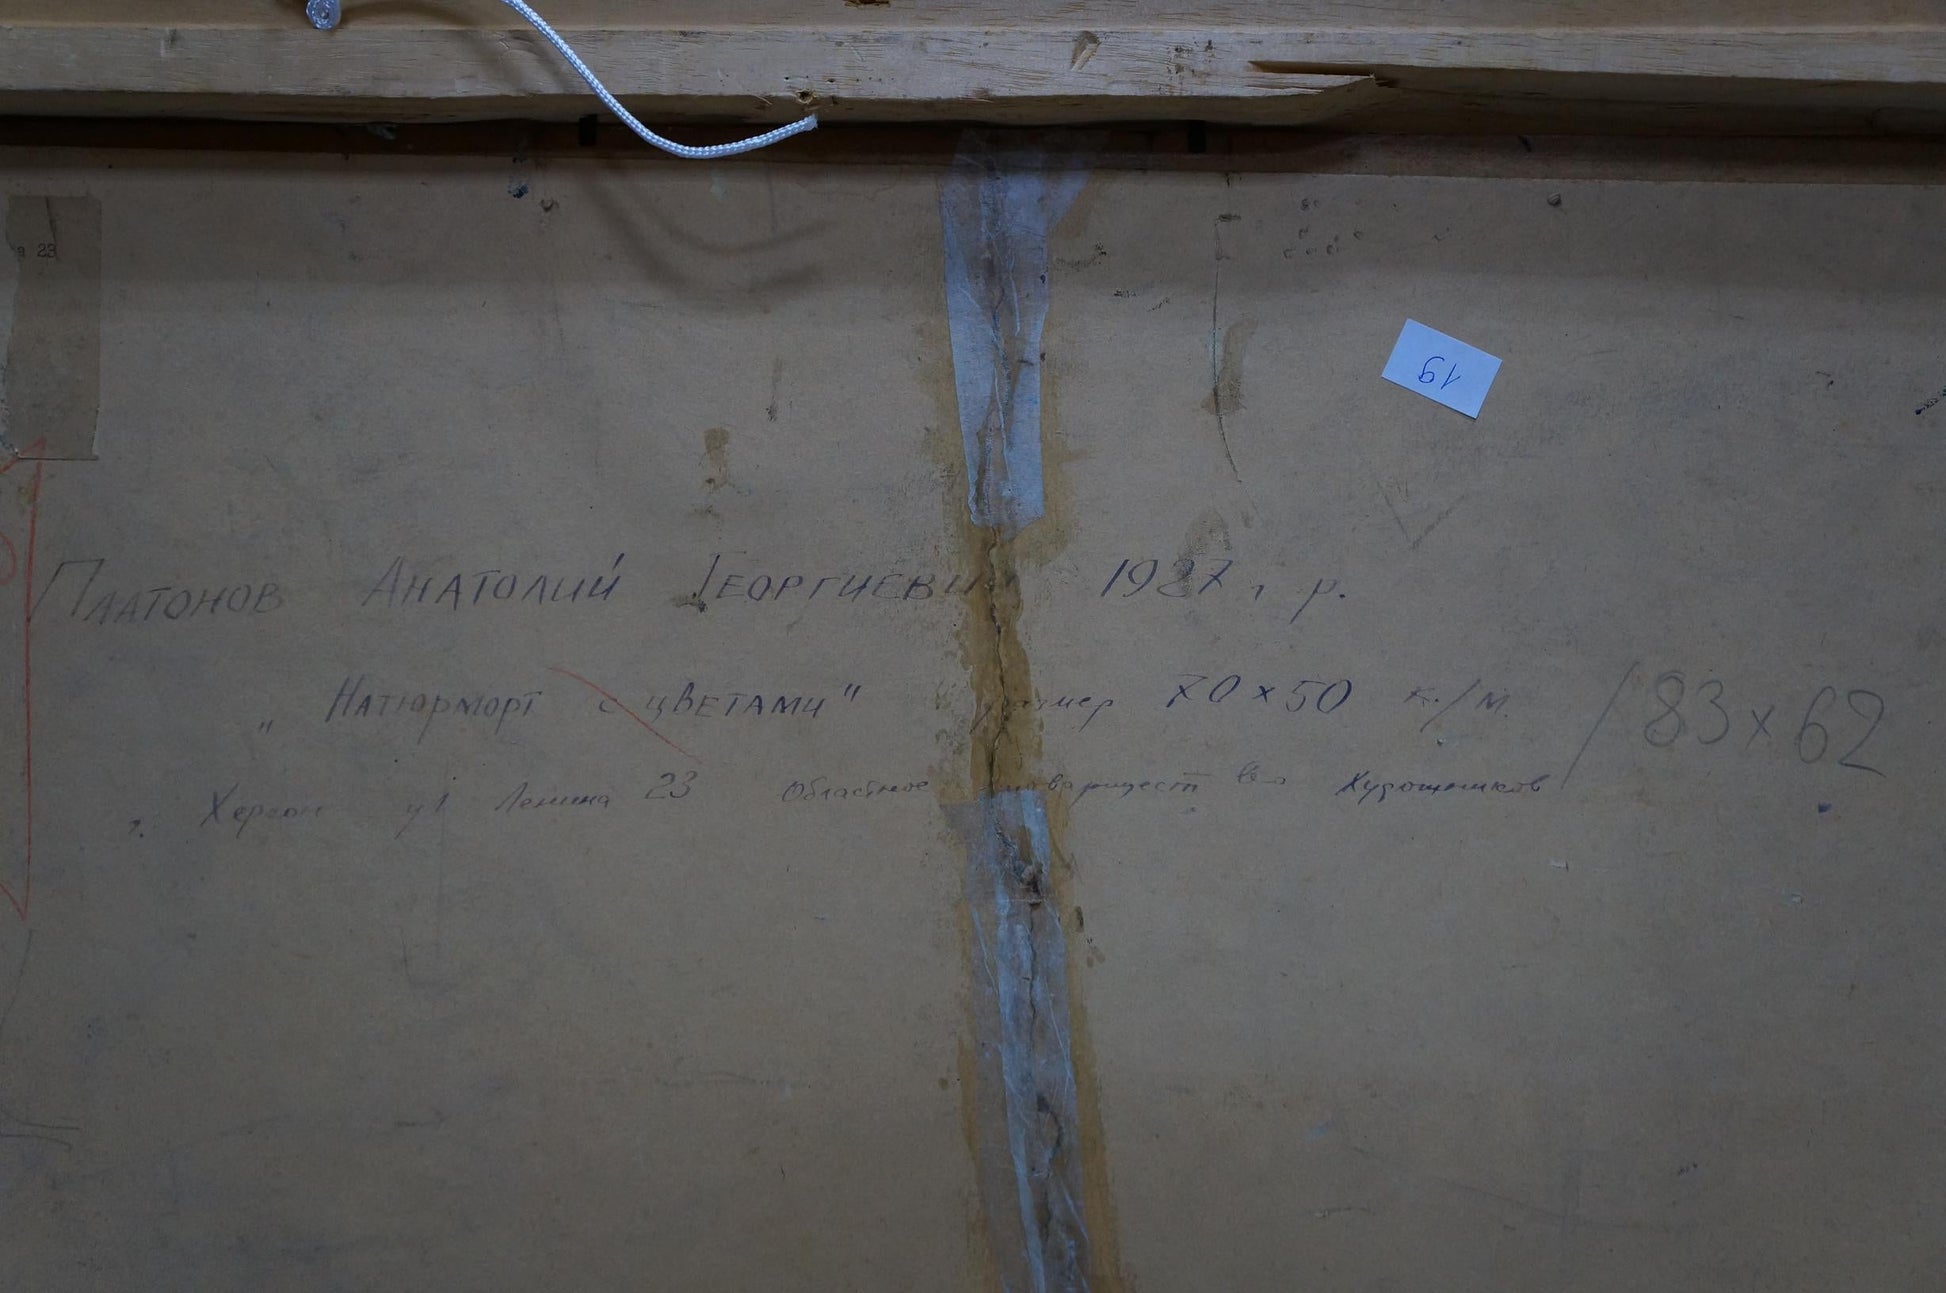 а 23
19
Платонов Анатолий Георгиевич 1927 г. р.
„Натюрморт с цветами" размер 70 х 50 к./м. / 83 х 62
г. Херсон ул Ленина 23 Областное товарищество Художников